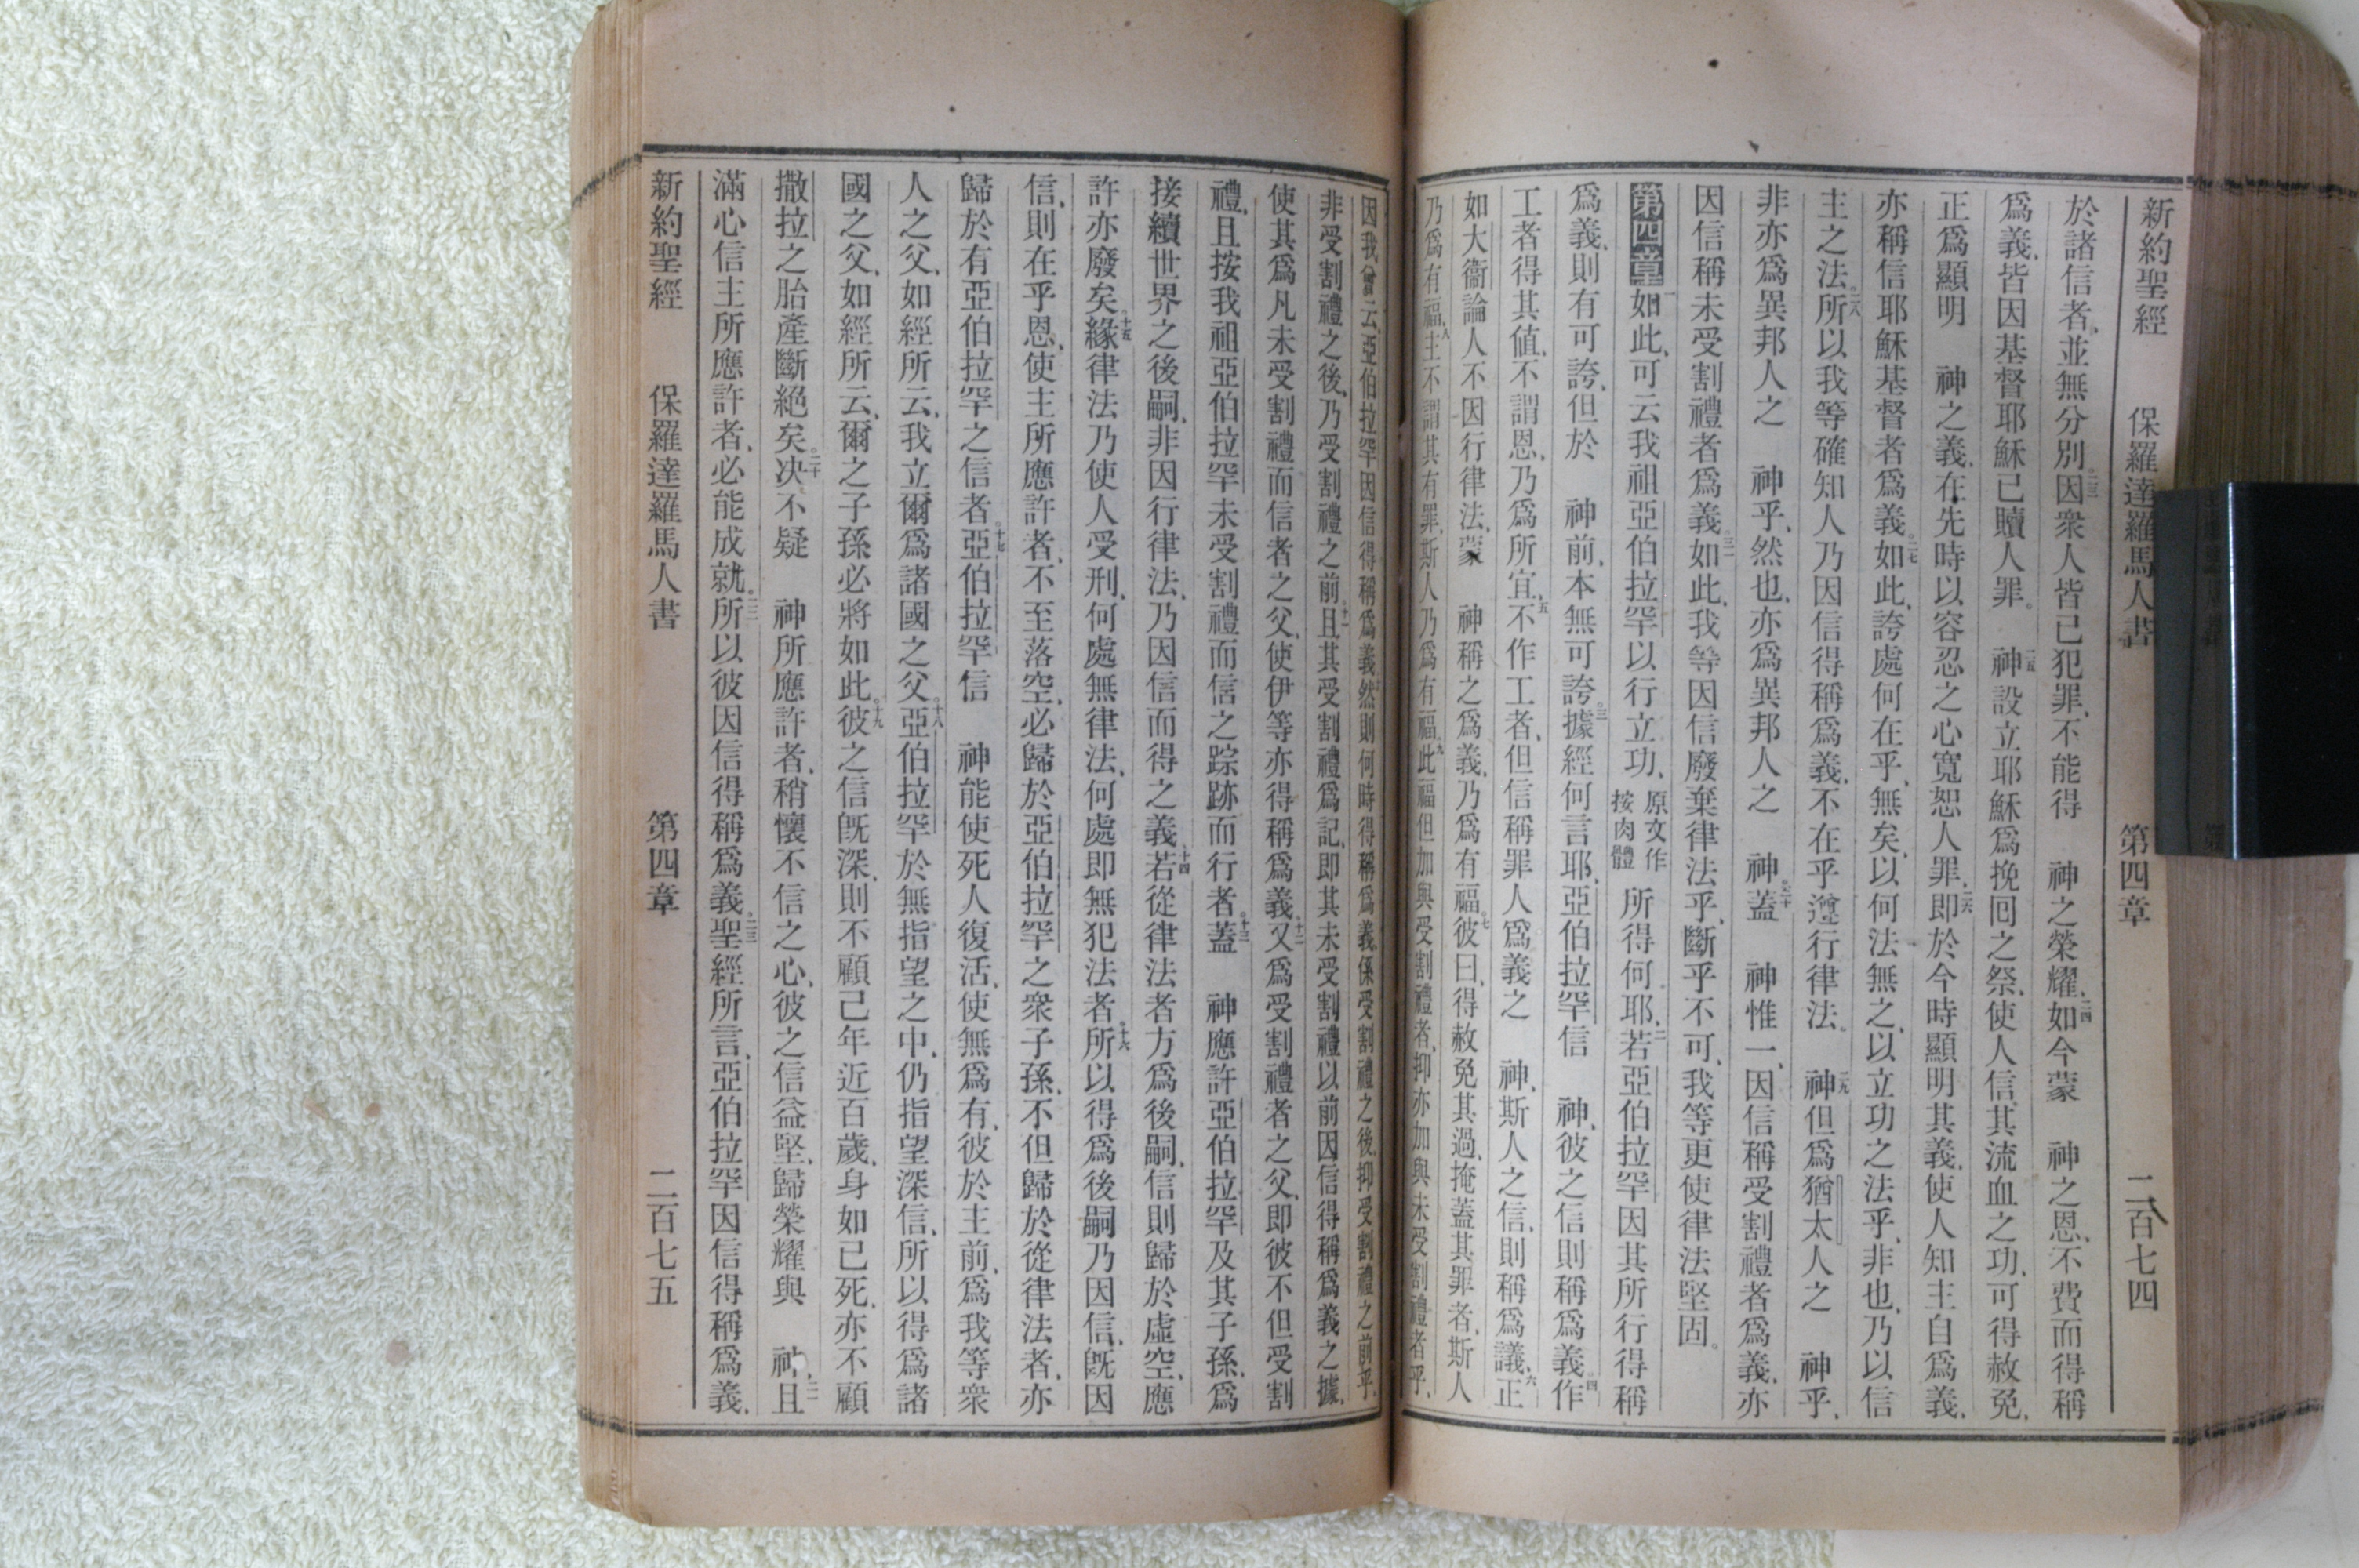 新約聖經　保羅達羅馬人書　第四章　二百七四
於諸信者、並無分別。二三因衆人皆已犯罪、不能得　神之榮耀、二四如今蒙　神之恩、不費而得稱
爲義、皆因基督耶穌已贖人罪。二五　神設立耶穌爲挽回之祭、使人信其流血之功、可得赦免、
正爲顯明　神之義、在先時以容忍之心寬恕人罪、二六即於今時顯明其義、使人知主自爲義、
亦稱信耶穌基督者爲義。二七如此、誇處何在乎、無矣、以何法無之、以立功之法乎、非也、乃以信
主之法。二八所以我等確知人乃因信得稱爲義、不在乎遵行律法。二九　神但爲猶太人之　神乎、
非亦爲異邦人之　神乎、然也、亦爲異邦人之　神。三十蓋　神惟一、因信稱受割禮者爲義、亦
因信稱未受割禮者爲義。三一如此、我等因信廢棄律法乎、斷乎不可、我等更使律法堅固。
第四章　一如此、可云我祖亞伯拉罕以行立功、原文作按肉體所得何耶、二若亞伯拉罕因其所行得稱
爲義、則有可誇、但於　神前、本無可誇。三據經何言耶、亞伯拉罕信　神、彼之信則稱爲義。四作
工者得其値、不謂恩、乃爲所宜、五不作工者、但信稱罪人爲義之　神、斯人之信、則稱爲議、六正
如大衞論人不因行律法、蒙　神稱之爲義、乃爲有福。七彼曰、得赦免其過、掩蓋其罪者、斯人
乃爲有福、八主不謂其有罪、斯人乃爲有福、九此福但加與受割禮者、抑亦加與未受割禮者乎、
因我曾云、亞伯拉罕因信得稱爲義、十然則何時得稱爲義、係受割禮之後、抑受割禮之前乎、
非受割禮之後、乃受割禮之前。十一且其受割禮爲記、即其未受割禮以前因信得稱爲義之據、
使其爲凡未受割禮而信者之父、使伊等亦得稱爲義。十二又爲受割禮者之父、即彼不但受割
禮、且按我祖亞伯拉罕未受割禮而信之踪跡而行者。十三蓋　神應許亞伯拉罕及其子孫、爲
接續世界之後嗣、非因行律法、乃因信而得之義。十四若從律法者方爲後嗣、信則歸於虛空、應
許亦廢矣。十五緣律法乃使人受刑、何處無律法、何處即無犯法者。十六所以得爲後嗣乃因信、旣因
信、則在乎恩、使主所應許者、不至落空、必歸於亞伯拉罕之衆子孫、不但歸於從律法者、亦
歸於有亞伯拉罕之信者。十七亞伯拉罕信　神能使死人復活、使無爲有、彼於主前、爲我等衆
人之父、如經所云、我立爾爲諸國之父。十八亞伯拉罕於無指望之中、仍指望深信、所以得爲諸
國之父、如經所云、爾之子孫必將如此。十九彼之信旣深、則不顧己年近百歲、身如已死、亦不顧
撒拉之胎產斷絕矣。二十決不疑　神所應許者、稍懷不信之心、彼之信益堅、歸榮耀與　神、二一且
滿心信主所應許者、必能成就。二二所以彼因信得稱爲義。二三聖經所言、亞伯拉罕因信得稱爲義、
新約聖經　保羅達羅馬人書　第四章　二百七五